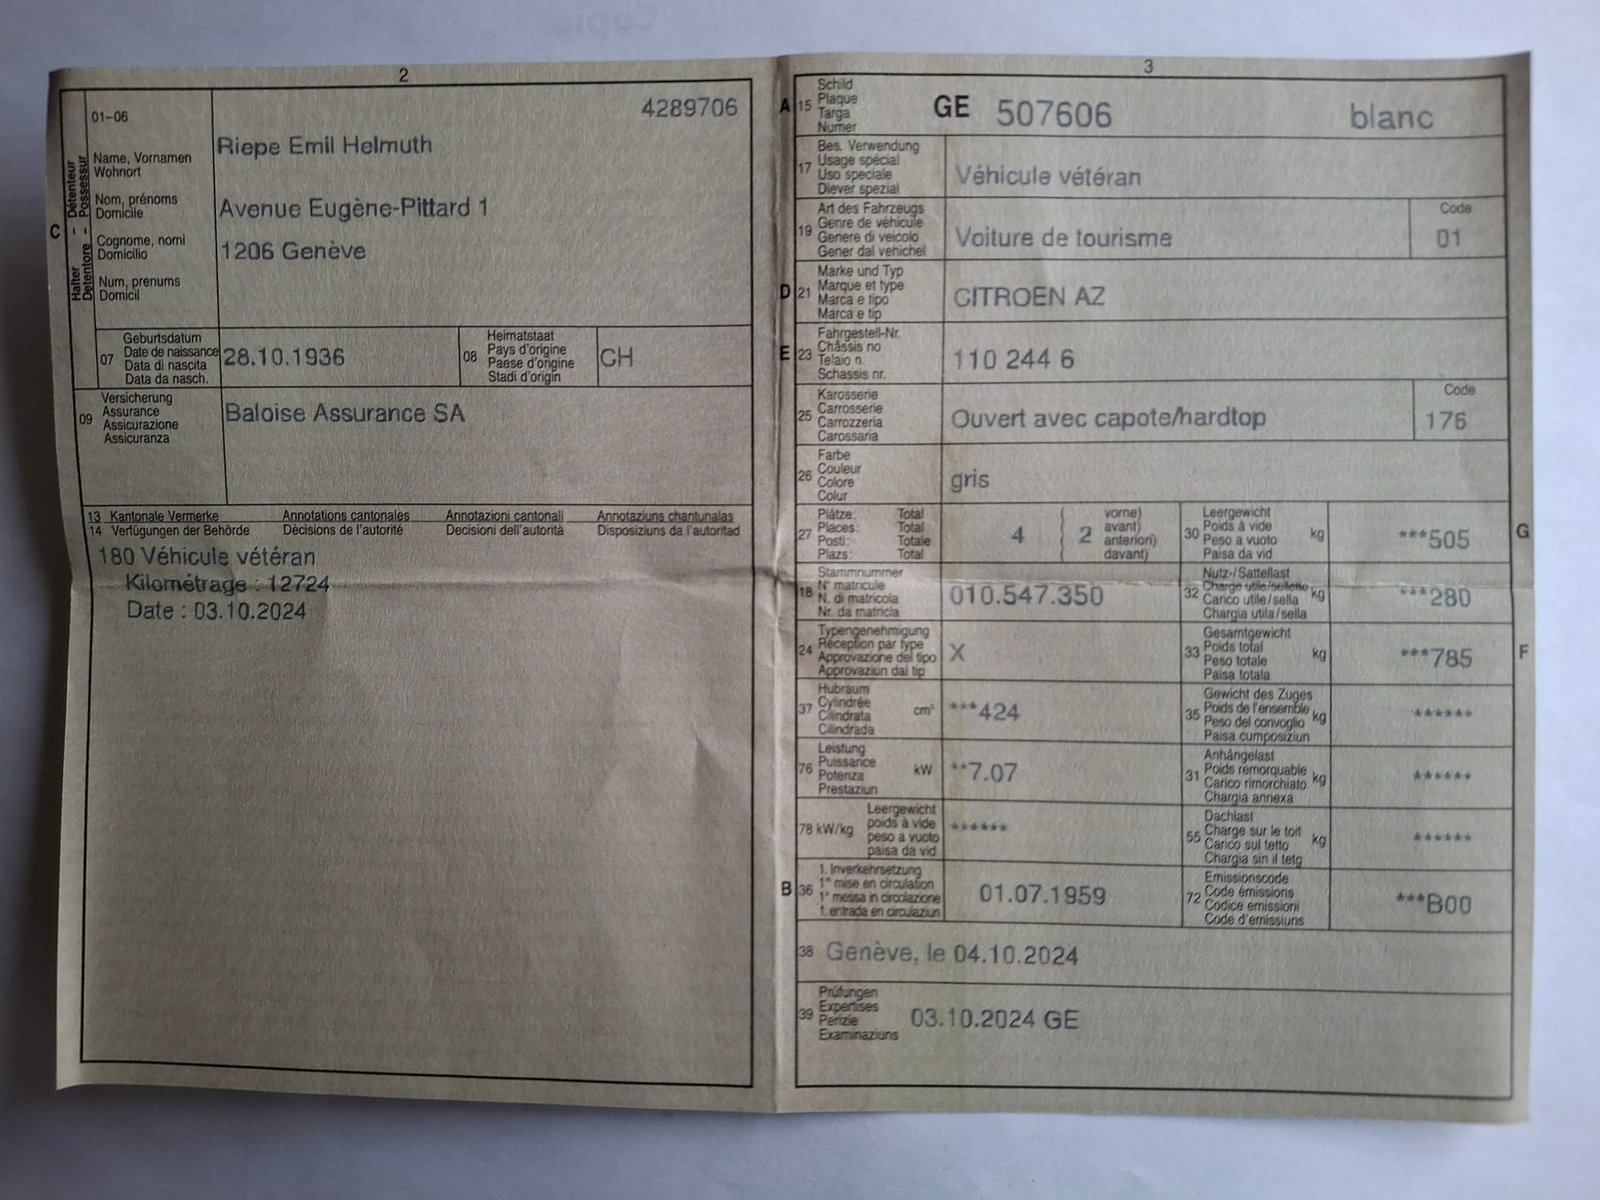 2
01-06
4289706
Halter - Détenteur
Detentore - Possessur
C
Name, Vornamen
Wohnort
Nom, prénoms
Domicile
Cognome, nomi
Domicilio
Num, prenums
Domicil
Riepe Emil Helmuth
Avenue Eugène-Pittard 1
1206 Genève
07 Geburtsdatum
Date de naissance
Data di nascita
Data da nasch.
28.10.1936
08 Heimatstaat
Pays d'origine
Paese d'origine
Stadi d'origin
CH
09 Versicherung
Assurance
Assicurazione
Assicuranza
Baloise Assurance SA
13 Kantonale Vermerke Annotations cantonales Annotazioni cantonali Annotaziuns chantunalas
14 Verfügungen der Behörde Décisions de l'autorité Decisioni dell'autorità Disposiziuns da l'autoritad
180 Véhicule vétéran
Kilométrage : 12724
Date : 03.10.2024
3
A 15 Schild
Plaque
Targa
Numer
GE 507606 blanc
17 Bes. Verwendung
Usage spécial
Uso speciale
Diever spezial
Véhicule vétéran
19 Art des Fahrzeugs
Genre de véhicule
Genere di veicolo
Gener dal vehichel
Voiture de tourisme
Code
01
D 21 Marke und Typ
Marque et type
Marca e tipo
Marca e tip
CITROEN AZ
E 23 Fahrgestell-Nr.
Châssis no
Telaio n.
Schassis nr.
110 244 6
25 Karosserie
Carrosserie
Carrozzeria
Carossaria
Ouvert avec capote/hardtop
Code
176
26 Farbe
Couleur
Colore
Colur
gris
27 Plätze: Total
Places: Total
Posti: Totale
Plazs: Total
4 ( 2 vorne)
avant)
anteriori)
davant)
30 Leergewicht
Poids à vide
Peso a vuoto
Paisa da vid
kg
***505
G
18 Stammnummer
N° matricule
N. di matricola
Nr. da matricla
010.547.350
32 Nutz-/Sattellast
Charge utile/sellette
Carico utile/sella
Chargia utila/sella
kg
***280
24 Typengenehmigung
Réception par type
Approvazione del tipo
Approvaziun dal tip
X
33 Gesamtgewicht
Poids total
Peso totale
Paisa totala
kg
***785
F
37 Hubraum
Cylindrée
Cilindrata
Cilindrada
cm³
***424
35 Gewicht des Zuges
Poids de l'ensemble
Peso del convoglio
Paisa cumposiziun
kg
******
76 Leistung
Puissance
Potenza
Prestaziun
kW
**7.07
31 Anhängelast
Poids remorquable
Carico rimorchiato
Chargia annexa
kg
******
78 kW/kg Leergewicht
poids à vide
peso a vuoto
paisa da vid
******
55 Dachlast
Charge sur le toit
Carico sul tetto
Chargia sin il tetg
kg
******
B 36 1. Inverkehrsetzung
1re mise en circulation
1a messa in circolazione
1. entrada en circulaziun
01.07.1959
72 Emissionscode
Code émissions
Codice emissioni
Code d'emissiuns
***B00
38 Genève, le 04.10.2024
39 Prüfungen
Expertises
Perizie
Examinaziuns
03.10.2024 GE